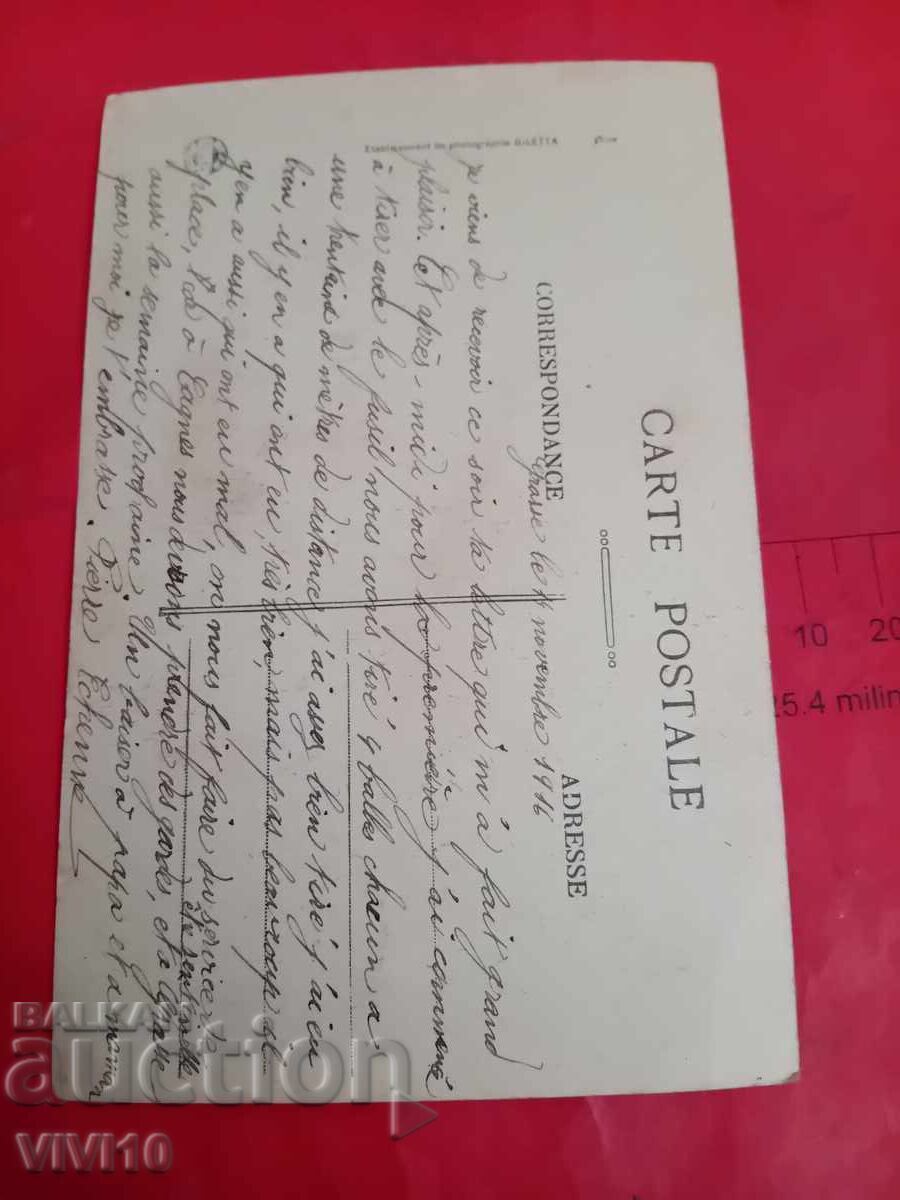 CARTE POSTALE
CORRESPONDANCE
ADRESSE
Etablissement de photographie GILETTA
Grasse le novembre 1916
je viens de recevoir ce soir ta lettre qui m'a fait grand
plaisir. Cet après-midi pour la première j'ai commencé
à tirer avec le fusil nous avons tiré 4 balles chacun à
une trentaine de mètres de distance, j'ai assez bien tiré j'ai eu
bien, il y en a qui ont eu très bien, mais pas beaucoup et il
y en a aussi qui ont eu mal, on nous fait faire du service de
place, à Cagnes nous devons prendre des gardes, et à Grasse
et de sentinelle
aussi la semaine prochaine. Un baiser à papa et à maman
pour moi je t'embrasse. Pierre Etienne
10 20
25.4 milim
BALKAN
auction
VIVI10